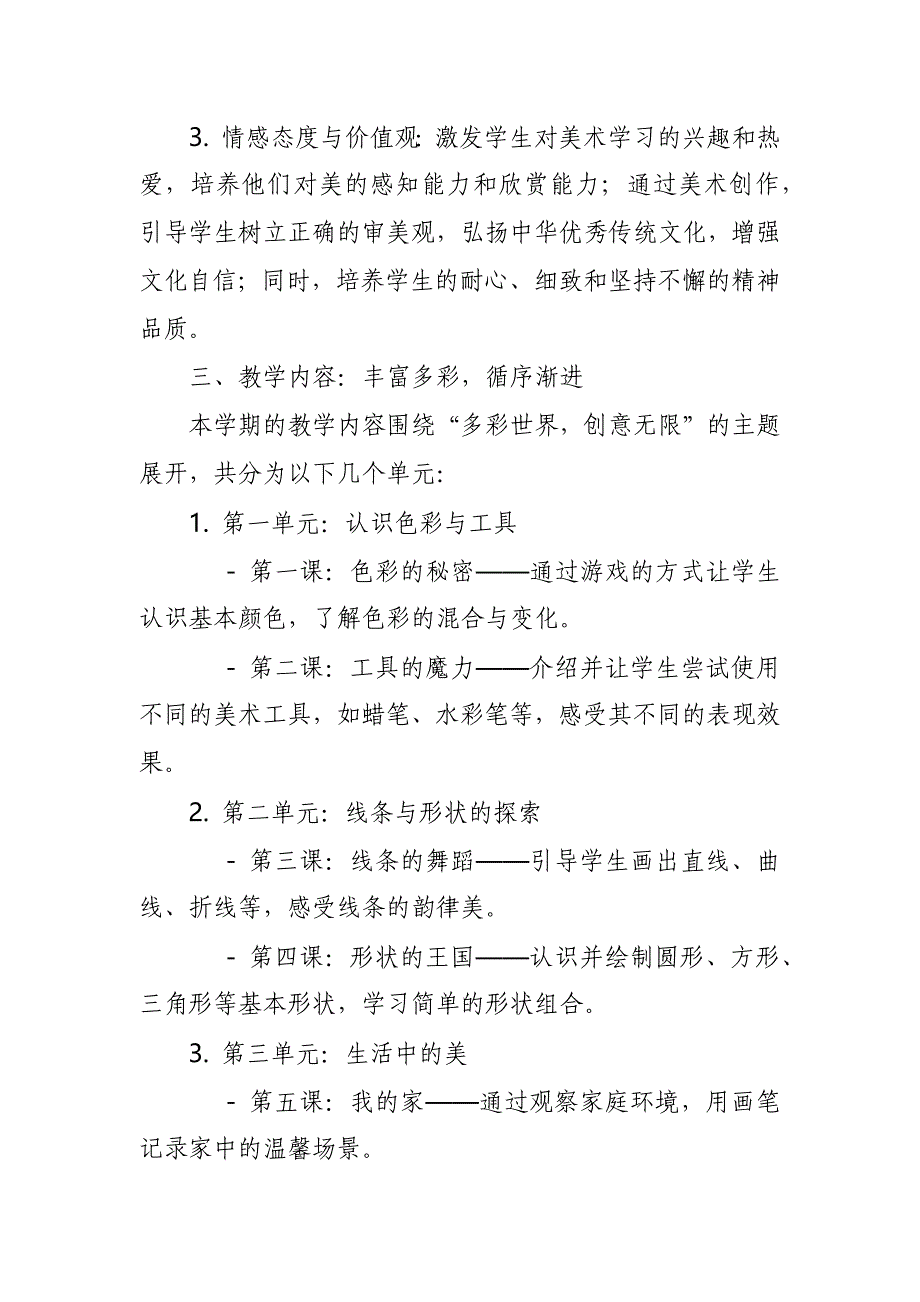 3. 情感态度与价值观：激发学生对美术学习的兴趣和热
爱，培养他们对美的感知能力和欣赏能力；通过美术创作，
引导学生树立正确的审美观，弘扬中华优秀传统文化，增强
文化自信；同时，培养学生的耐心、细致和坚持不懈的精神
品质。
三、教学内容：丰富多彩，循序渐进
本学期的教学内容围绕“多彩世界，创意无限”的主题
展开，共分为以下几个单元：
1. 第一单元：认识色彩与工具
- 第一课：色彩的秘密——通过游戏的方式让学生
认识基本颜色，了解色彩的混合与变化。
- 第二课：工具的魔力——介绍并让学生尝试使用
不同的美术工具，如蜡笔、水彩笔等，感受其不同的表现效
果。
2. 第二单元：线条与形状的探索
- 第三课：线条的舞蹈——引导学生画出直线、曲
线、折线等，感受线条的韵律美。
- 第四课：形状的王国——认识并绘制圆形、方形、
三角形等基本形状，学习简单的形状组合。
3. 第三单元：生活中的美
- 第五课：我的家——通过观察家庭环境，用画笔
记录家中的温馨场景。